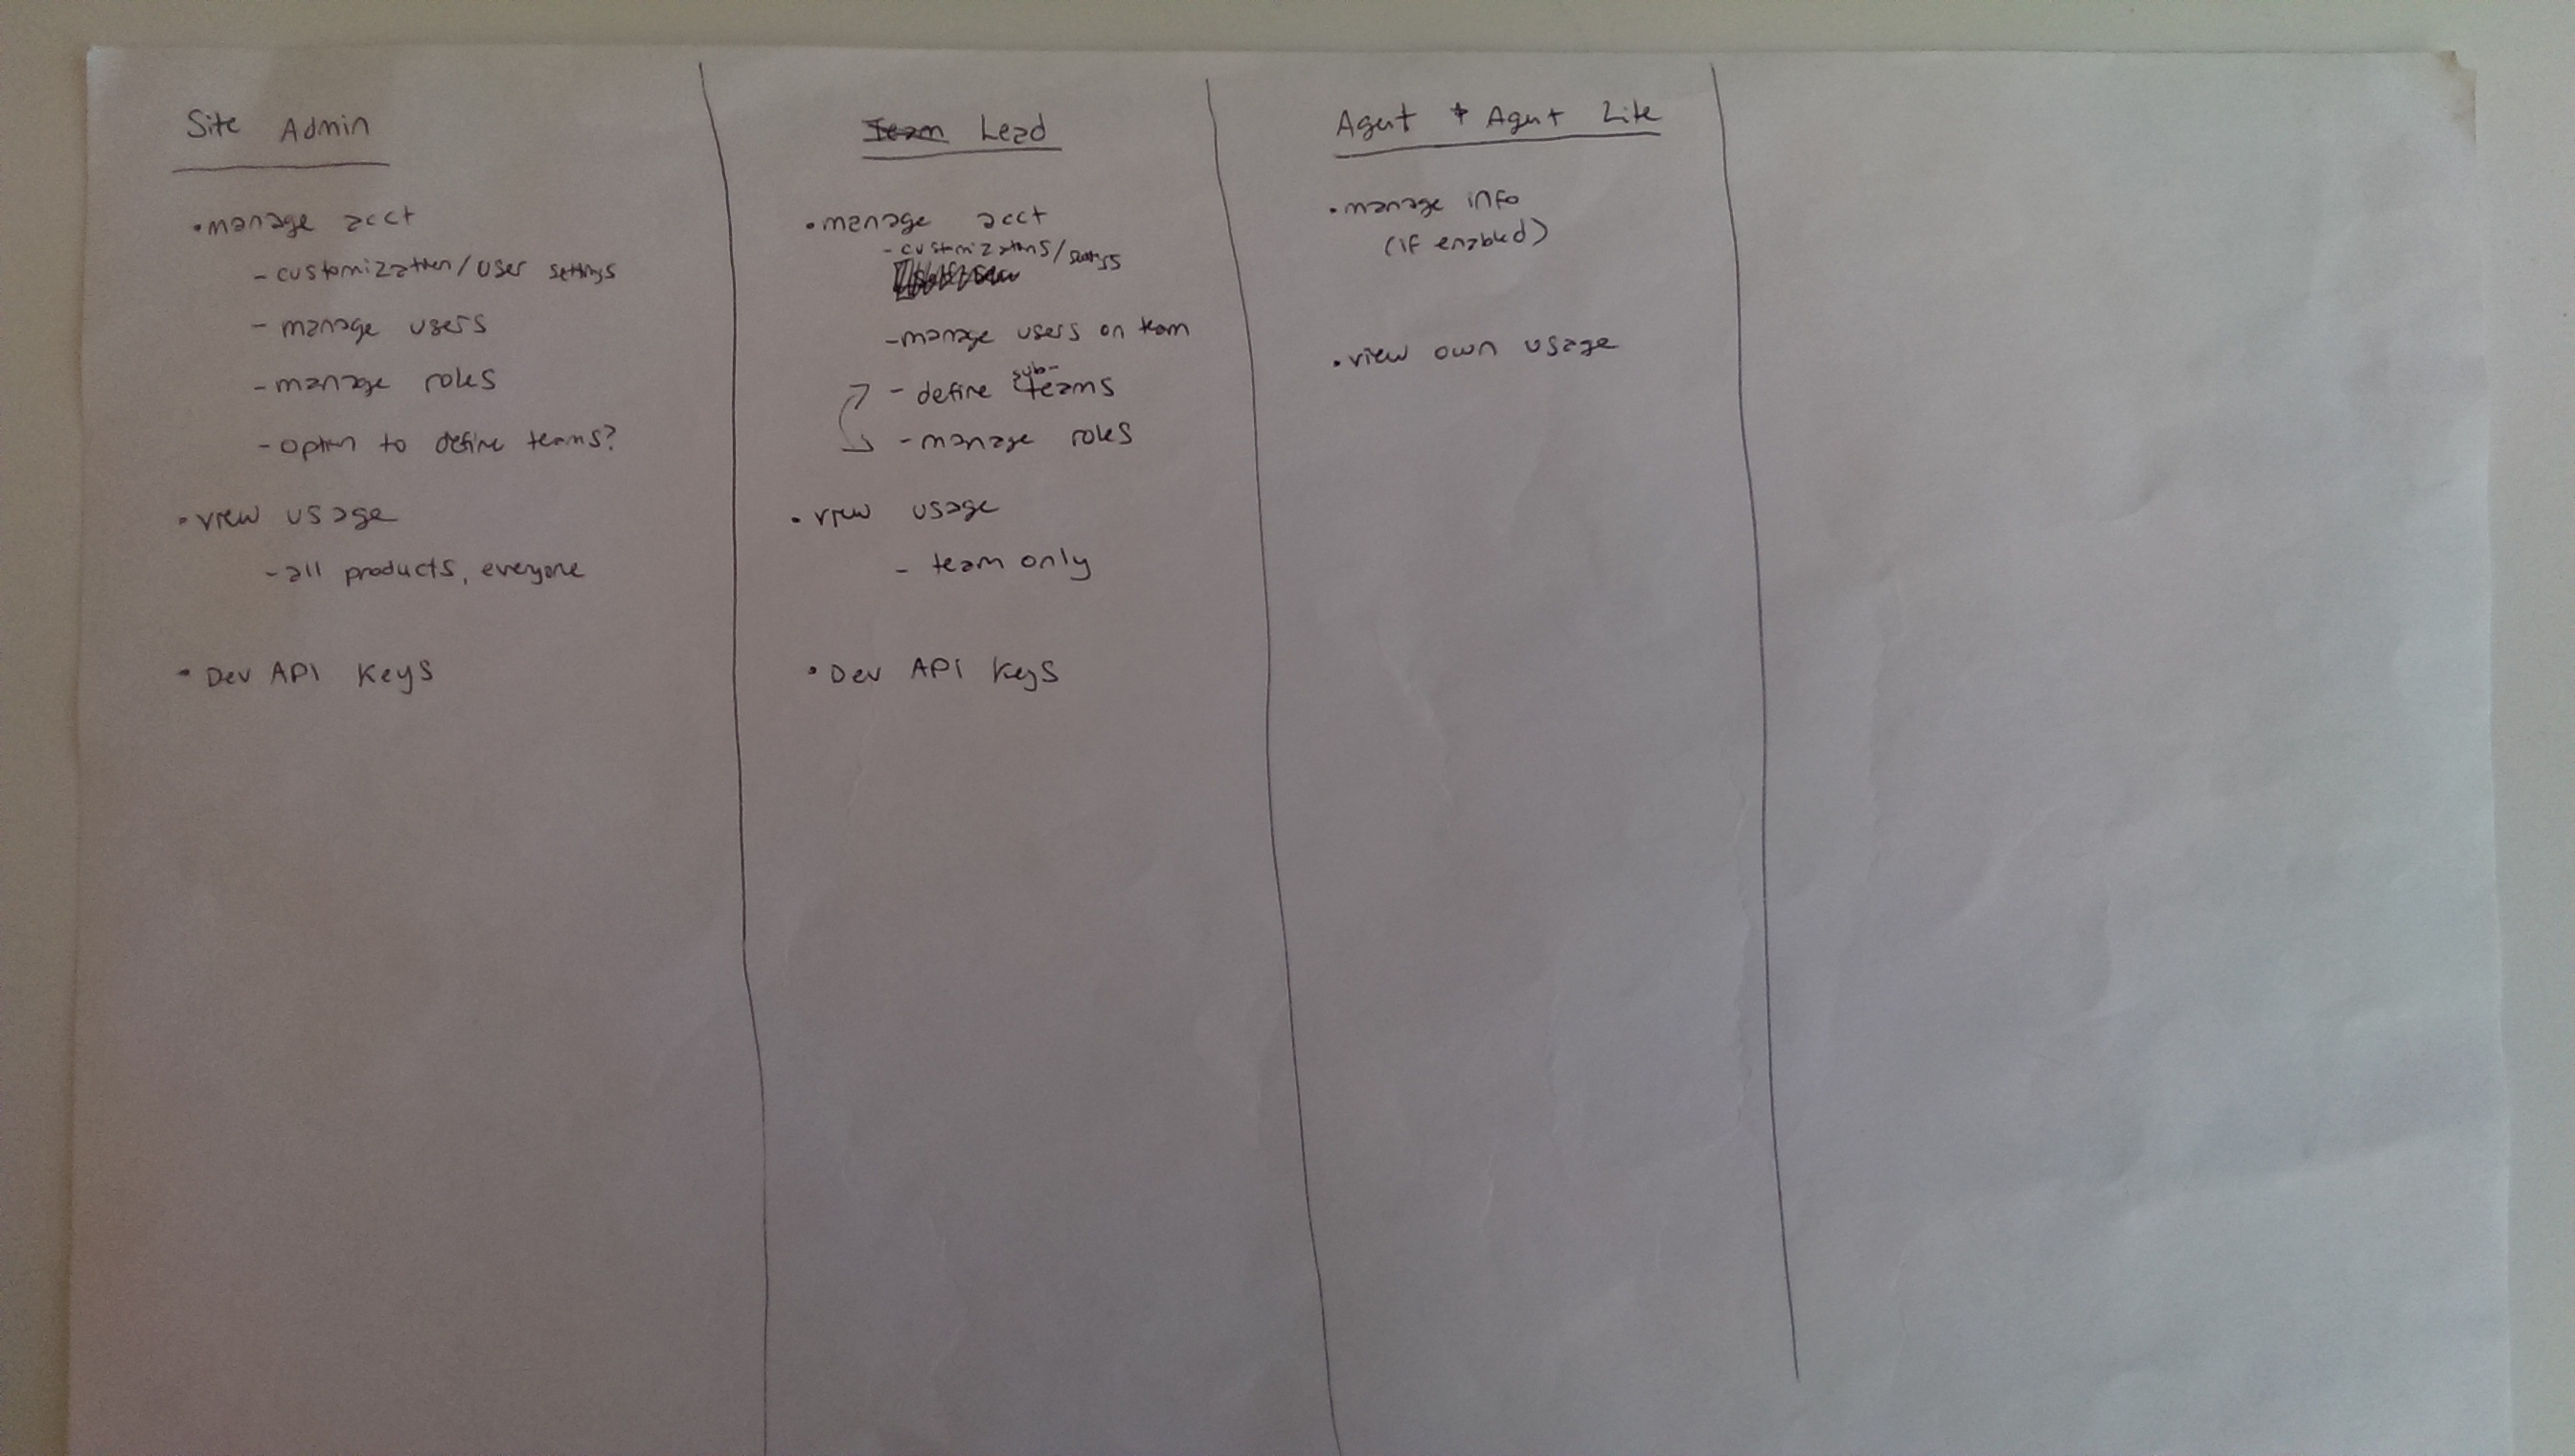 Site Admin
•manage acct
- customization/user settings
- manage users
- manage roles
- option to define teams?
•view usage
- all products, everyone
• Dev API Keys
Team Lead
•manage acct
- customizations/settings
-manage users on team
- define sub-teams
- manage roles
• view usage
- team only
• Dev API Keys
Agent + Agent Lite
•manage info
(if enabled)
•view own usage